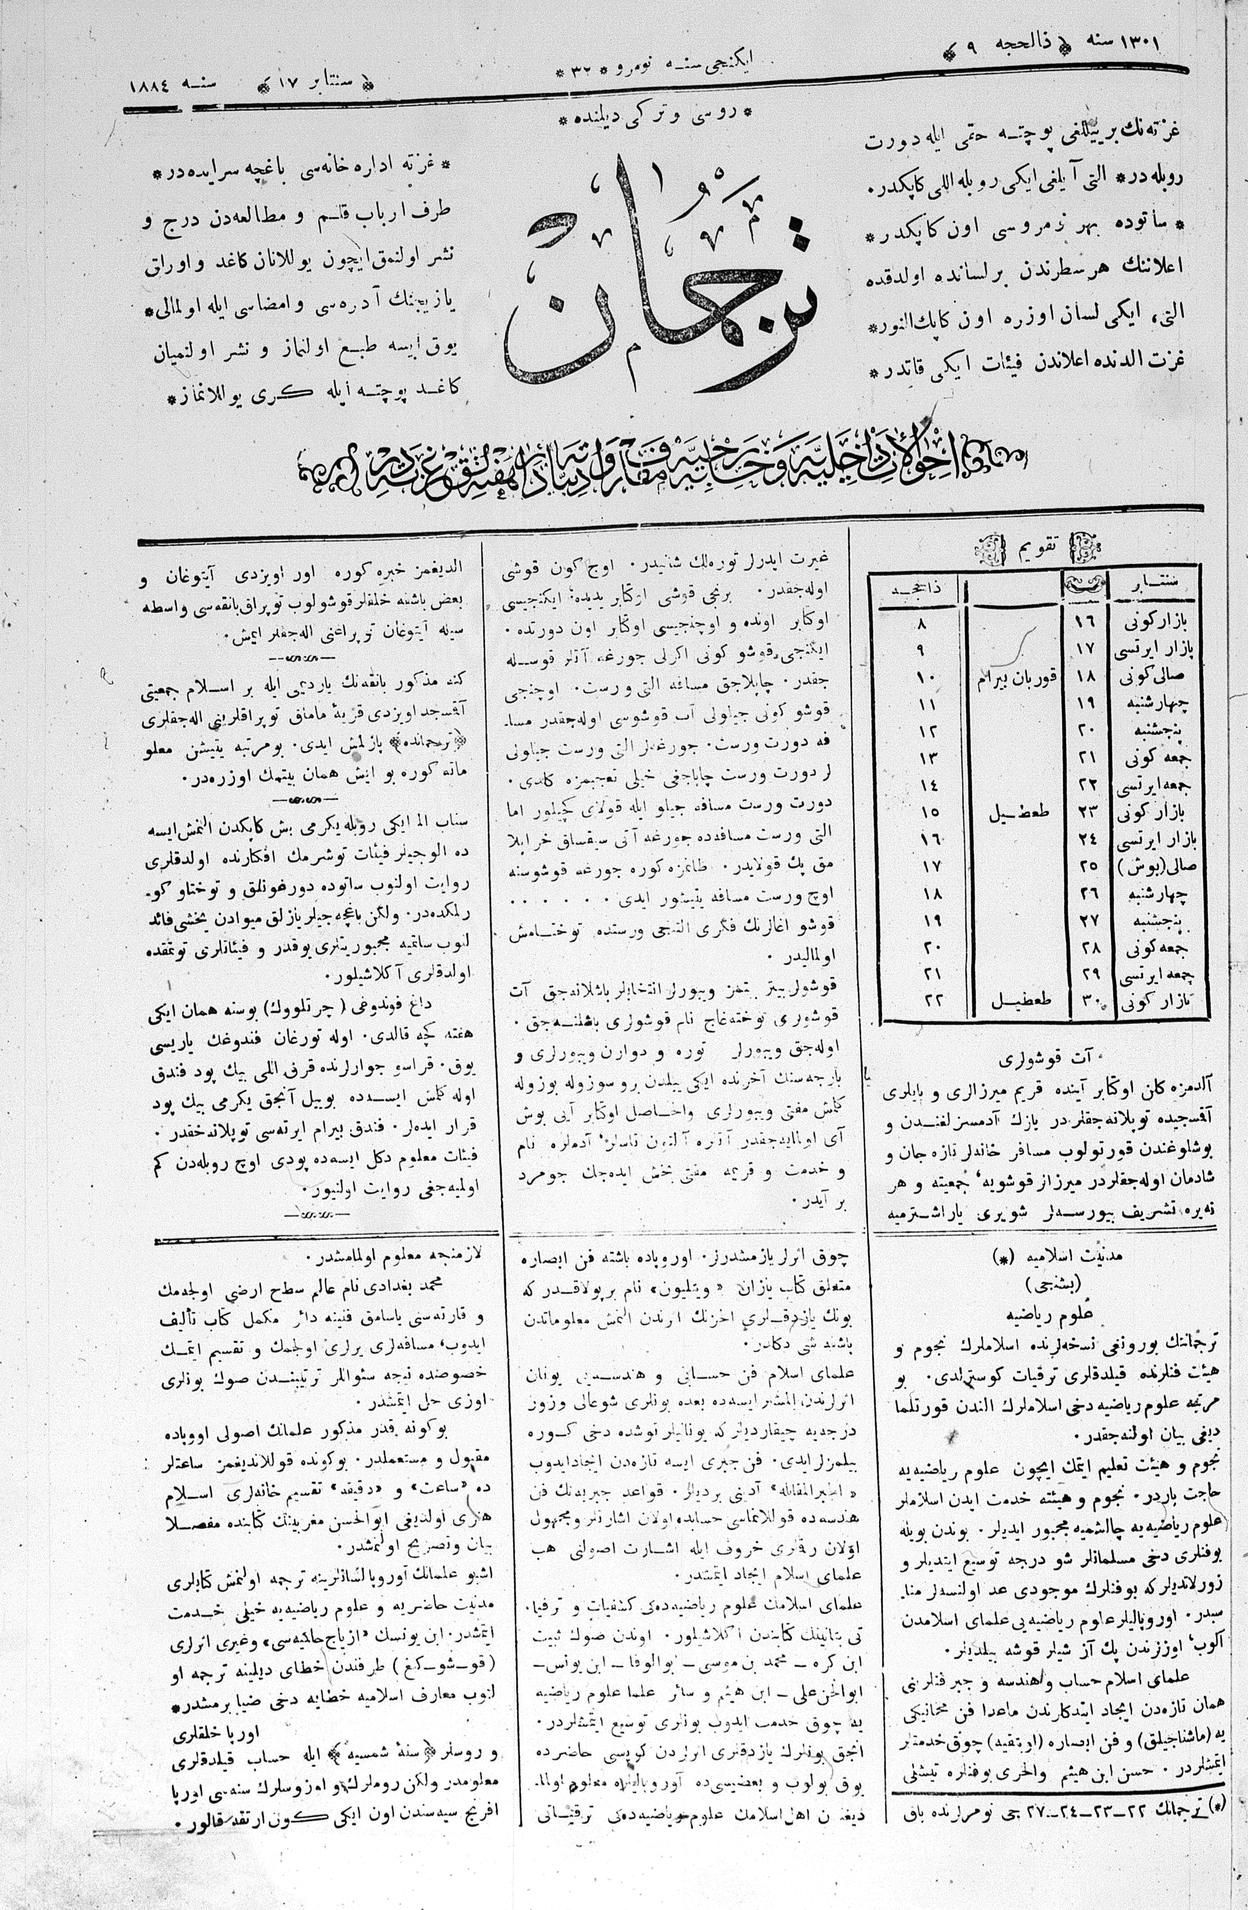 ١٣٠١ سنه ذالحجه ٩
ايكنجی سنه نومرو * ٣٢ *
سنتابر ١٧ سنه ١٨٨٤
* روسی و تركی ديلنده *
غزته‌نك بر ييللغی پوچته حتمی ايله دورت
روبله در* التی آيلغی ايكی روبله اللی كاپكدر.
* ساتوده بهر نومروسی اون كاپكدر *
اعلاننك هر سطرندن بر لسانده اولدقده
التی، ايكی لسان اوزره اون كاپك النور*
غزت الدنده اعلاندن فيئات ايكی قاتدر *
ترجمان
* غزته اداره خانه‌سی باغچه سرايده در*
طرف ارباب قلم و مطالعه‌دن درج و
نشر اولنمق ايچون يوللانان كاغد و اوراق
يازيجينك آدره‌سی و امضاسی ايله اولمالی*
يوق ايسه طبع اولنماز و نشر اولنميان
كاغد پوچته ايله كری يوللانماز*
احوالات داخليه و خارجيه
تقويم
سنتابر ذالحجه
بازار كونی ١٦ ٨
بازار ايرتسی ١٧ ٩
صالی كونی ١٨ قوربان بيرام ١٠
چهارشنبه ١٩ ١١
پنجشنبه ٢٠ ١٢
جمعه كونی ٢١ ١٣
جمعه ايرتسی ٢٢ ١٤
بازار كونی ٢٣ طعطيل ١٥
بازار ايرتسی ٢٤ ١٦
صالی (بوش) ٢٥ ١٧
چهارشنبه ٢٦ ١٨
پنجشنبه ٢٧ ١٩
جمعه كونی ٢٨ ٢٠
جمعه ايرتسی ٢٩ ٢١
بازار كونی ٣٠ طعطيل ٢٢
آت قوشولری
آلدمزه كان اوكتابر آينده قريم ميرزالری و بايلری
آقسجيده توپلانه‌جقلر در يازك آدمسزلغندن و
بوشلوغندن قورتولوب مسافر خانه‌لر تازه جان و
شادمان اوله‌جقلر در ميرزالر قوشويه، جمعيته و هر
نه‌يره تشريف بيورسه‌لر شويری ياراشترميه
غيرت ايدرلر توره‌لك شانيدر. اوج كون قوشی
اوله‌جقدر. برنجی قوشی اوكتابر يديده؛ ايكنجيسی
اوكتابر اونده و اوچنجيسی اوكتابر اون دورتده.
ايكنجی قوشو كونی اكرلی جورغه آتلر قوسله
جقدر. چاپلاجق مسافه التی ورست. اوچنجی
قوشو كونی جيلولی آب قوشوسی اوله‌جقدر مسا-
فه دورت ورست. جورغه‌لر التی ورست جيلولی
لر دورت ورست چاپاجغی خيلی تعجبمزه كلدی.
دورت ورست مسافه جيلو ايله قولای كچيلور اما
التی ورست مسافه‌ده جورغه آتی سيقساق خرابلا
مق پك قولايدر. ظانمزه كوره جورغه قوشوسنه
اوچ ورست مسافه يتيشور ايدی . . . . . .
قوشو اغالرنك فكری التنجی ورستده توختامش
اولماليدر.
قوشولر بيتر بتمز ويبورلر انتخابلر باشلانه‌جق آت
قوشولری توخته‌غاج نام قوشولری باشلنه‌جق.
اوله‌جق ويبورلر توره و دوارن ويبورلری و
بارچه‌سنك آخرنده ايكی ييلدن برو سوزوله بوزوله
كلمش مفتی ويبورلری واحاصل اوكتابر آيی بوش
آی اولمايه‌جقدر
و خدمت و قريمه مفتی بخش ايده‌جك جومرد
بر آيدر.
الديغمز خبره كوره اور اويزدی آيتوغان و
بعض باشقه خلقلر قوشولوب توپراق بانقه‌سی واسطه
سيله آيتوغان توپراغنی اله‌جقلر ايمش.
كنه مذكور بانقه‌نك يارديمی ايله بر اسلام جمعيتی
آقسجد اويزدی قريهٔ ماماق توپراقلرينی اله‌جقلری
«ترجمانده» يازلمش ايدی. بو مرتبه يتيشن معلو
ماته كوره بو ايش همان بيتمك اوزره‌در.
سناب الما ايكی روبله يكرمی بش كاپكدن النمش ايسه
ده الوجيلر فيئات توشرمك افكارنده اولدقلری
روايت اولنوب ساتوده دورغونلق و توختاو كو-
رلمكده‌در. ولكن باغچه جيلر يازلق ميوادن يخشی فائد
لنوب ساتميه مجبوريتلری يوقدر و فيئاتلری توتمقده
اولدقلری آكلاشيلور.
داغ فوندوغی (چرتلووك) بوسنه همان ايكی
هفته كچه قالدی. اوله تورغان فندوغك ياريسی
يوق. قراسو جوارلرنده قرق اللی بيك پود فندق
اوله كلمش ايسه‌ده بوييل آنجق يكرمی بيك پود
قرار ايدەلر. فندق بيرام ايرته‌سی توپلانه‌خقدر.
فيئات معلوم دكل ايسه‌ده پودی اوچ روبله‌دن كم
اولميه‌جغی روايت اولنيور.
مدنيت اسلاميه (*)
(بشنجی)
علوم رياضيه
ترجماننك بورونغی نسخه‌لرنده اسلاملرك نجوم و
هيئت فنلرنده قيلدقلری ترقيات كوسترلدی. بو
مرتبه علوم رياضيه دخی اسلاملرك الندن قورتلما
ديغی بيان اولنه‌جقدر.
نجوم و هيئت تعليم ايتمك ايچون علوم رياضيه‌يه
حاجت باردر. نجوم و هيئته خدمت ايدن اسلاملر
علوم رياضيه‌يه چالشميه مجبور ايديلر. بوندن بويله
بوفنلری دخی مسلمانلر شو درجه توسيع ايتديلر و
زورلانديلر كه بوفنلرك موجودی عد اولنسه‌لر منا-
سبدر. اوروپاليلر علوم رياضيه‌يی علمای اسلامدن
آلوب، اوزلرندن پك آز شيلر قوشه بيلديلر.
علمای اسلام حساب و هندسه و جبر فنلرينی
همان تازه‌دن ايجاد ايتدكلرندن ماعدا فن مخانيكی
يه (ماشناجيلق) و فن ابصاره (اوپتقيه) چوق خدمتلر
ايتمشلردر. حسن ابن هيثم والخری بوفنلره تيشلی
(*) ترجماننك ٢٢–٢٣–٢٤–٢٧ جی نومرلرنده باق
چوق اثرلر يازمشدرلر. اوروپاده باشته فن ابصاره
متعلق كتاب يازان «ويتليون» نام بر پولاقدر كه
بونك يازدقلری اخزنك اثرندن النمش معلوماتدن
باشقه شی دكلدر.
علمای اسلام فن حسابی و هندسه‌يی يونان
اثرلرندن المشلر ايسه‌ده بعده بونلری شو عالی و زور
درجه‌يه چيقارديلر كه يونانيلر توشده دخی كوره
بيلمزلر ايدی. فن جبری ايسه تازه‌دن ايجاد ايدوب
«الجبر المقابله» آدينی برديلر. قواعد جبريه‌نك فن
هندسه‌ده قوللانماسی حسابده اولان اشارتلر و مجهول
اولان رقملری حروف ايله اشارت اصولنی هب
علمای اسلام ايجاد ايتمشدر.
علمای اسلامك علوم رياضيه‌ده‌كی كشفيات و ترقيا-
تی بتانينك كتابندن آكلاشيلور. اوندن صوك ثبيت
ابن كره – محمد بن موسی – ابوالوفا – ابن يونس –
ابوالحن علی – ابن هيثم و سائر علما علوم رياضيه
يه چوق خدمت ايدوب بونلری توسيع ايتمشلردر.
آنجق بونلرك يازدقلری اثرلردن كوپسی حاضرده
يوق بولوب و بعضيسی‌ده آوروپاليلره معلوم اولما-
ديغندن اهل اسلامك علوم رياضيه‌ده‌كی ترقياتی
لازمنجه معلوم اولمامشدر.
محمد بغدادی نام عالم سطح ارضی اولچه‌مك
و قارته‌سی ياسامق فنينه دائر مكمل كتاب تأليف
ايدوب، مسافه‌لری يرلری اولچمك و تقسيم ايتمك
خصوصنده نيچه سئواللر ترتيبندن صوك بونلری
اوزی حل ايتمشدر.
بوكونه قدر مذكور علمانك اصولی اوروپاده
مقبول و مستعملدر. بوكونده قوللانديغمز ساعتلر
ده «ساعت» و «دقيقه» تقسيم خانه‌لری اسلام
هنری اولديغی ابوالحسن مغربينك كتابنده مفصلا
بيان و تصريح اولنمشدر.
اشبو علمانك آوروپا لسانلرينه ترجمه اولنمش كتابلری
مدنيت حاضريه و علوم رياضيه‌يه خيلی خدمت
ايتمشدر. ابن يونسك «ازياج حاكميه‌سی» وغيری اثرلری
(قو-شو-كنغ) طرفندن خطای ديلينه ترجمه او
لنوب معارف اسلاميه خطايه دخی ضيا برمشدر*
اورپا خلقلری
و روسلر «سنهٔ شمسيه» ايله حساب قيلدقلری
معلومدر ولكن روملرك و اوروسلرك سنه‌سی اورپا
افرنج سيه‌سندن اون ايكی كون ارتقه قالور.